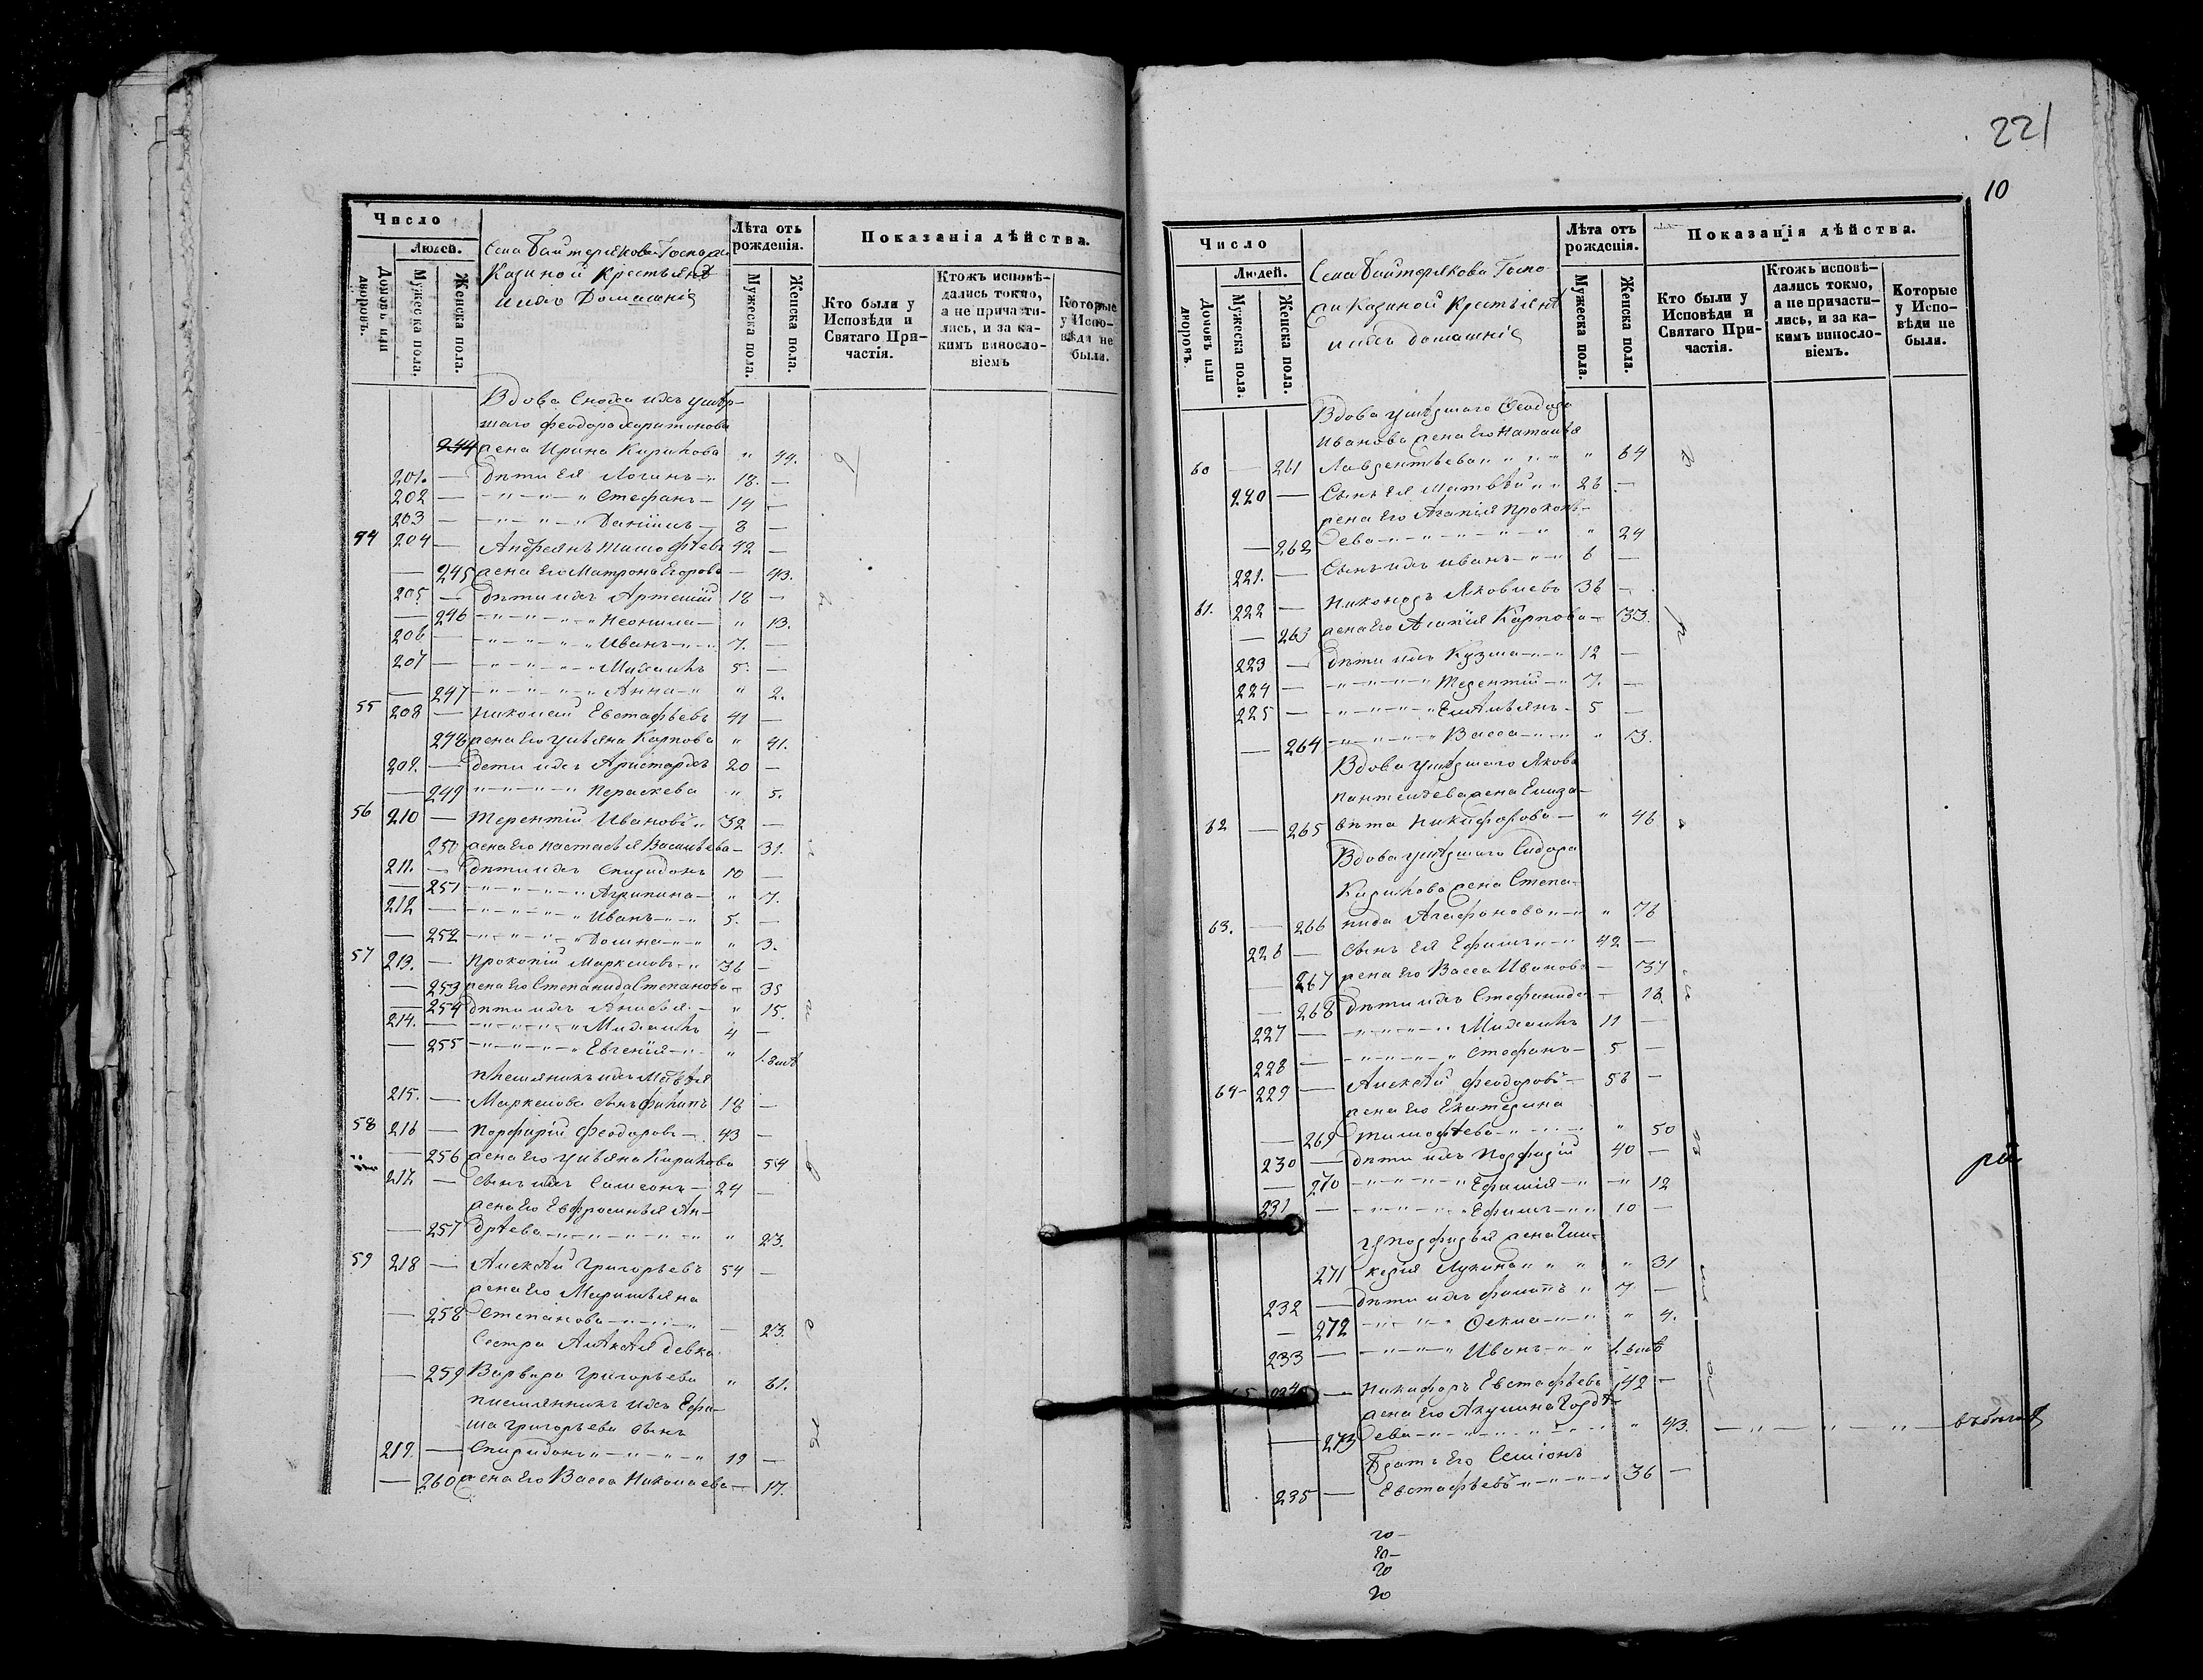 Число
Людей.
Домовъ или дворовъ.
Мужеска пола.
Женска пола.
Села Байтерякова Госпожи
Казиной крестьянѣ
и ихъ Домашніе
Лѣта отъ рожденія.
Мужеска пола.
Женска пола.
Показанія дѣйства.
Кто были у Исповѣди и Святаго Причастія.
Ктожъ исповѣдались токмо, а не причастились, и за какимъ винословіемъ
Которые у Исповѣди не были.
Вдова Сноха ихъ умер-
шаго Феодора Харитонова
244 жена Ирина Кирилова " 44.
201. — Дѣти Ея Логинъ — 18. —
202 — " " " Стефанъ — 14 —
203 — " " " Даніилъ — 8 —
54 204 — Андреянъ Тимофѣевъ 42 —
— 245 жена Его Матрона Егорова — 43.
205. — Дѣти ихъ Артемій 18 —
— 246 " " " Неонила — " 13.
206 — " " " Иванъ 7. —
207 — " " " Михаилъ 5. —
— 247 " " " Анна " 2.
55 208 — Николай Евстафьевъ 41 —
248 жена Его Ульяна Карпова " 41.
209. — Дети ихъ Аристархъ 20 —
— 249 " " " Пераскева " 5.
56 210 — Терентій Ивановъ 32 —
250 жена Его Настасья Васильева — 31.
211. — Дѣти ихъ Спиридонъ 10 —
— 251 " " " Агрипина — " 7.
212 — " " " Иванъ 5. —
— 252 " " " Домна " 3.
57 213. — Прокопій Маркеловъ 36 —
— 253 жена Его Степанида Степанова — 35
— 254 Дѣти ихъ Анисья — " 15.
214. — " " " Михаилъ 4 —
— 255 " " " Евгенія "
племянникъ ихъ
215. — Маркелова сынъ Филипъ 18 —
58 216 — Порфирій Феодоровъ — 43 —
— 256 жена Его Ульяна Кирилова 54
217 — Сынъ ихъ Самсонъ — 24 —
жена Его Евфросинья Ан-
— 257 дрѣева " 23.
59 218 — Алексѣй Григорьевъ 54 —
жена Его Маримьяна
— 258 Степанова — 23.
Сестра Алексѣя девка
— 259 Варвара Григорьева " 61.
племянникъ ихъ Ефи-
ма Григорьева сынъ
219. — Спиридонъ 19 —
— 260 жена Его Васса Николаева — 17.
221
10
Число
Людей.
Домовъ или дворовъ.
Мужеска пола.
Женска пола.
Села Байтерякова Госпо-
жи Казиной Крестьянѣ
и ихъ домашніе
Лѣта отъ рожденія.
Мужеска пола.
Женска пола.
Показанія дѣйства.
Кто были у Исповѣди и Святаго Причастія.
Ктожъ исповѣдались токмо, а не причастились, и за какимъ винословіемъ.
Которые у Исповѣди не были.
Вдова умершаго Феодора
Иванова жена Его Наталья
60 — 261 Лаврентьева " 64
220 — Сынъ Ея Матвѣй 26 —
жена Его Агапія Прокопь-
— 262 ева " 24
221. — Сынъ ихъ Иванъ 6 —
61. 222 — Никоноръ Яковлевъ 36 —
— 263 жена Его Агапія Карпова — 33.
223 — Дѣти ихъ Кузма 12 —
224 — " " " Терентій 7. —
225 — " " " Емельянъ — 5 —
— 264 " " " Васса " 3.
Вдова умершаго Якова
Пантелѣева жена Елиза-
62 — 265 вѣта Никифорова — " 46
Вдова умершаго Сидора
Кирилова жена Степа-
63. — 266 нида Агафонова " 76
226 — Сынъ Ея Ефимъ 42 —
— 267 жена Его Васса Иванова — 37
— 268 Дѣти ихъ Стефанида — 18.
227 — " " " Михаилъ 11 —
228 — " " " Стефанъ — 5 —
64 229 — Алексѣй Феодоровъ — 56 —
жена Его Екатерина
— 269 Тимофѣева " 50
230 — Дѣти ихъ Порфирій 40 —
— 270 " " " Ефимія " 12
231 — " " " Ефимъ 10 —
У Порфирья жена Гли-
271 керія Лукина " 31
232 — Дѣти ихъ Филипъ 7. —
— 272 " " " Фекла " 4.
233 — " " " Иванъ
65 234 — Никифоръ Евстафьевъ 42 —
жена Его Акулина Гордѣ-
— 273 ева " 43. — " — " — " — въ бегахъ
Братъ Его Семіонъ
235 — Евстафьевъ 36 —
20 —
20 —
20
20